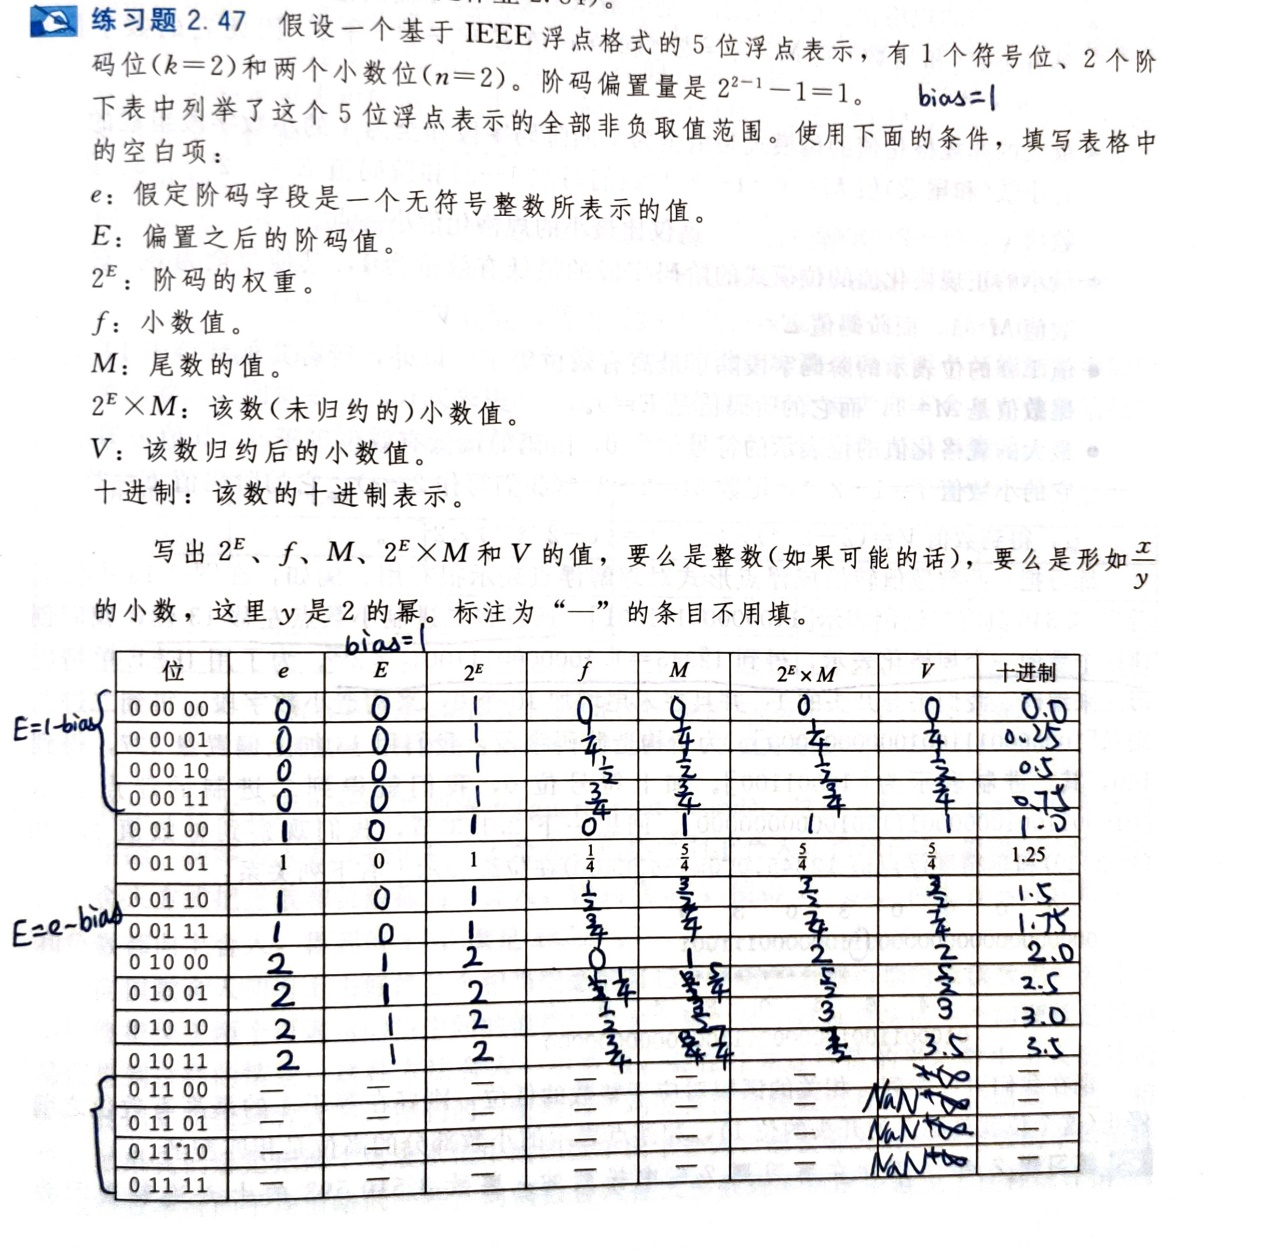 练习题 2.47 假设一个基于 IEEE 浮点格式的 5 位浮点表示，有 1 个符号位、2 个阶
码位(k=2)和两个小数位(n=2)。阶码偏置量是 2²⁻¹−1=1。 bias=1
下表中列举了这个 5 位浮点表示的全部非负取值范围。使用下面的条件，填写表格中
的空白项：
e：假定阶码字段是一个无符号整数所表示的值。
E：偏置之后的阶码值。
2ᴱ：阶码的权重。
f：小数值。
M：尾数的值。
2ᴱ×M：该数(未归约的)小数值。
V：该数归约后的小数值。
十进制：该数的十进制表示。
写出 2ᴱ、f、M、2ᴱ×M 和 V 的值，要么是整数(如果可能的话)，要么是形如 x/y
的小数，这里 y 是 2 的幂。标注为“—”的条目不用填。
bias=1
位 e E 2ᴱ f M 2ᴱ×M V 十进制
E=1-bias
0 00 00 0 0 1 0 0 0 0 0.0
0 00 01 0 0 1 1/4 1/4 1/4 1/4 0.25
0 00 10 0 0 1 1/2 1/2 1/2 1/2 0.5
0 00 11 0 0 1 3/4 3/4 3/4 3/4 0.75
0 01 00 1 0 1 0 1 1 1 1.0
0 01 01 1 0 1 1/4 5/4 5/4 5/4 1.25
E=e-bias
0 01 10 1 0 1 1/2 3/2 3/2 3/2 1.5
0 01 11 1 0 1 3/4 7/4 7/4 7/4 1.75
0 10 00 2 1 2 0 1 2 2 2.0
0 10 01 2 1 2 1/4 5/4 5/2 5/2 2.5
0 10 10 2 1 2 1/2 3/2 3 3 3.0
0 10 11 2 1 2 3/4 7/4 7/2 3.5 3.5
0 11 00 — — — — — — +∞ —
0 11 01 — — — — — — NaN +∞ —
0 11 10 — — — — — — NaN +∞ —
0 11 11 — — — — — — NaN +∞ —